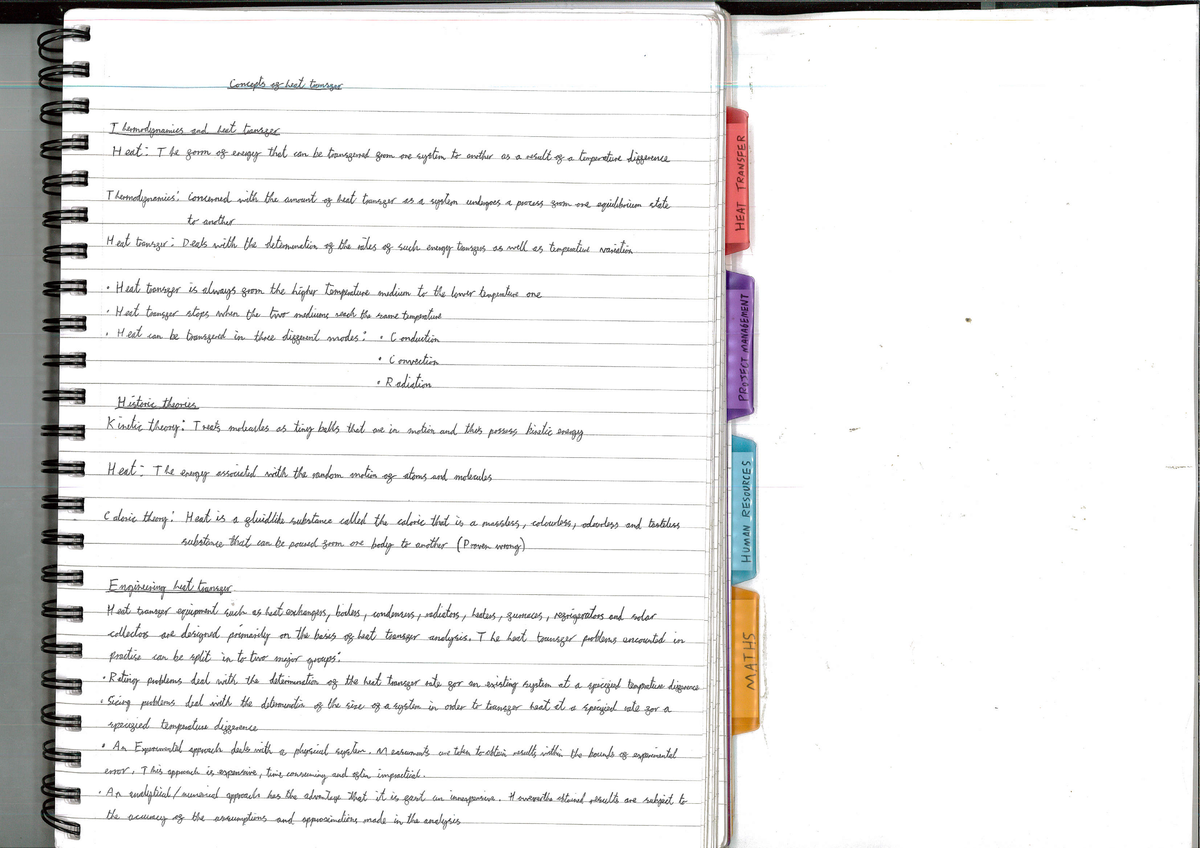 Concepts of heat transfer
Thermodynamics and heat transfer
Heat: The form of energy that can be transferred from one system to another as a result of a temperature difference
Thermodynamics: Concerned with the amount of heat transfer as a system undergoes a process from one equilibrium state
to another
Heat transfer: Deals with the determination of the rates of such energy transfers as well as temperature variation
• Heat transfer is always from the higher temperature medium to the lower temperature one
• Heat transfer stops when the two mediums reach the same temperature
• Heat can be transfered in three different modes: • Conduction
• Convection
• Radiation
Historic theories
Kinetic theory: Treats molecules as tiny balls that are in motion and thus possess kinetic energy
Heat: The energy associated with the random motion of atoms and molecules
Caloric theory: Heat is a fluidlike substance called the caloric that is a massless, colourless, odourless and tasteless
substance that can be poured from one body to another (Proven wrong)
Engineering heat transfer
Heat transfer equipment such as heat exchangers, boilers, condensers, radiators, heaters, furnaces, refrigerators and solar
collectors are designed primarily on the basis of heat transfer analysis. The heat transfer problems encounted in
practise can be split in to two major groups:
• Rating problems deal with the determination of the heat transfer rate for an existing system at a specified temperature difference
• Sizing problems deal with the determination of the size of a system in order to transfer heat at a specified rate for a
specified temperature difference
• An Experimental approach deals with a physical system. Measurments are taken to obtain results within the bounds of experimental
error. This approach is expensive, time consuming and often impractical.
• An analytical/numerical approach has the advantage that it is fast an inexpensive. However the obtained results are subject to
the accuracy of the assumptions and approximations made in the analysis
HEAT TRANSFER
PROJECT MANAGEMENT
HUMAN RESOURCES
MATHS